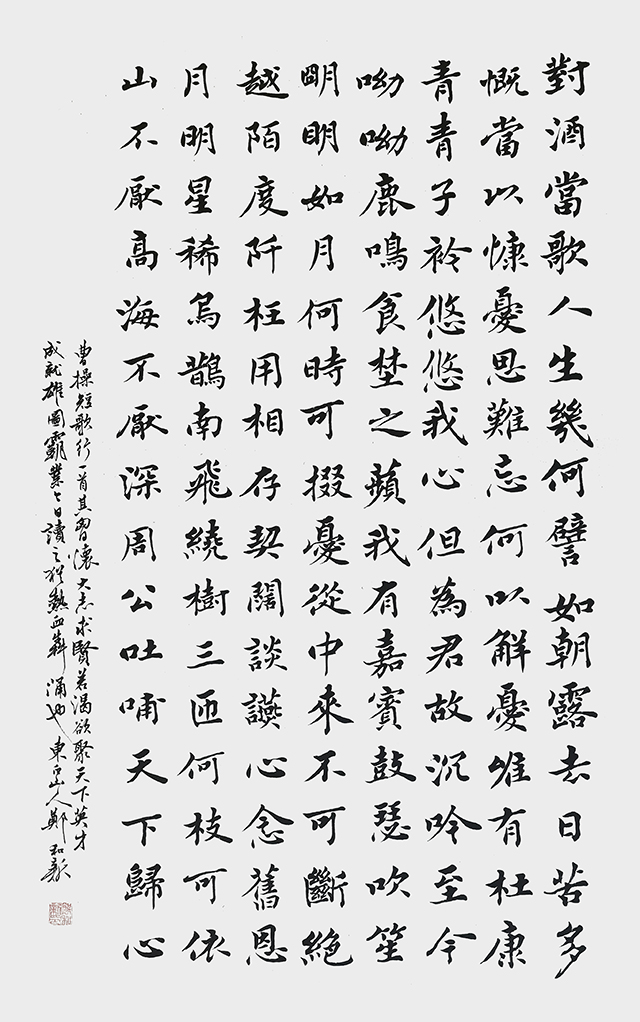 對酒當歌人生幾何譬如朝露去日苦多
慨當以慷憂思難忘何以解憂唯有杜康
青青子衿悠悠我心但為君故沉吟至今
呦呦鹿鳴食埜之蘋我有嘉賓鼓瑟吹笙
明明如月何時可掇憂從中來不可斷絕
越陌度阡枉用相存契闊談讌心念舊恩
月明星稀烏鵲南飛繞樹三匝何枝可依
山不厭高海不厭深周公吐哺天下歸心
曹操短歌行一首其胷懷大志求賢若渴欲聚天下英才
成就雄圖霸業今日讀之猶熱血犇涌也